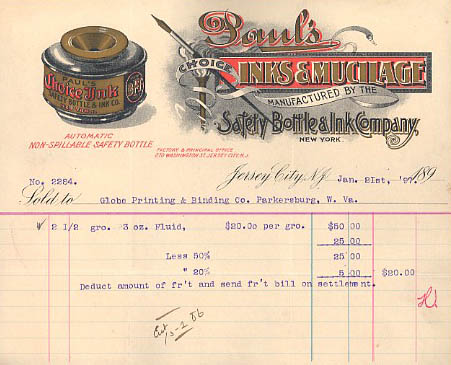 Paul's
CHOICE
INKS & MUCILAGE
MANUFACTURED BY THE
Safety Bottle & Ink Company,
NEW YORK.
PAUL'S
Choice Ink
SAFETY BOTTLE & INK CO.
AUTOMATIC
NON-SPILLABLE SAFETY BOTTLE
FACTORY & PRINCIPAL OFFICE
270 WASHINGTON ST. JERSEY CITY N.J.
No. 2284.
Jersey City, N.J. Jan. 21st, '97. 189
Sold to Globe Printing & Binding Co. Parkersburg, W. Va.
2 1/2 gro. 3 oz. Fluid, $20.00 per gro. $50 00
25 00
Less 50% 25 00
" 20% 5 00 $20.00
Deduct amount of fr't and send fr't bill on settlement.